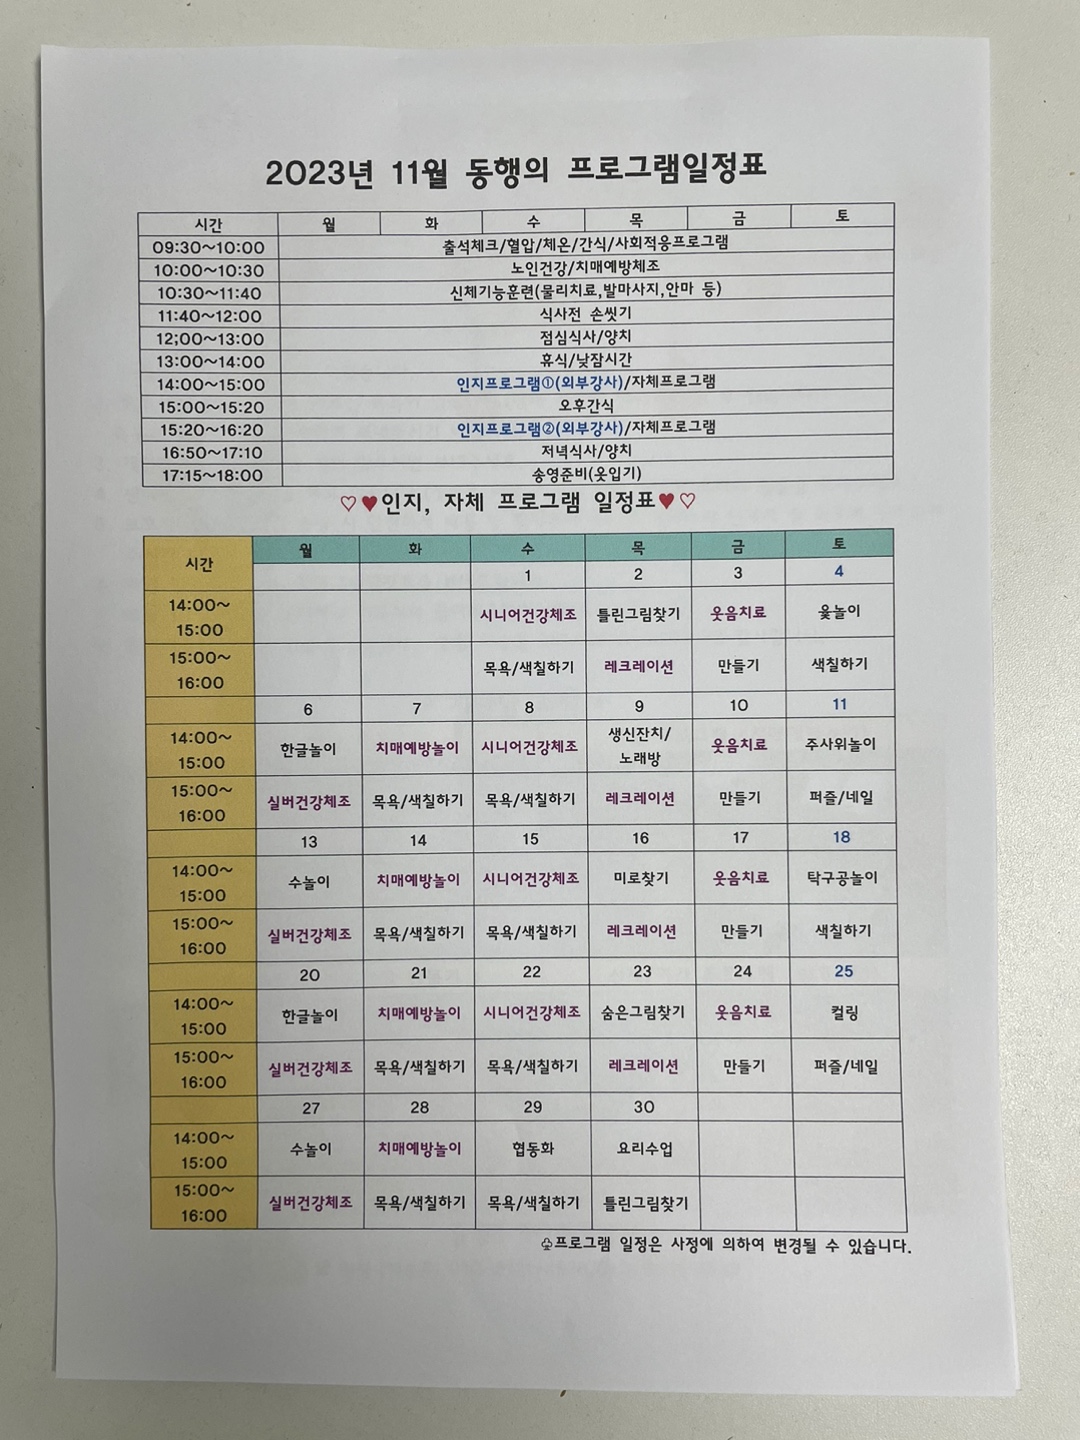 2023년 11월 동행의 프로그램일정표
시간 월 화 수 목 금 토
09:30~10:00 출석체크/혈압/체온/간식/사회적응프로그램
10:00~10:30 노인건강/치매예방체조
10:30~11:40 신체기능훈련(물리치료,발마사지,안마 등)
11:40~12:00 식사전 손씻기
12;00~13:00 점심식사/양치
13:00~14:00 휴식/낮잠시간
14:00~15:00 인지프로그램①(외부강사)/자체프로그램
15:00~15:20 오후간식
15:20~16:20 인지프로그램②(외부강사)/자체프로그램
16:50~17:10 저녁식사/양치
17:15~18:00 송영준비(옷입기)
♡♥인지, 자체 프로그램 일정표♥♡
시간 월 화 수 목 금 토
1 2 3 4
14:00~15:00 시니어건강체조 틀린그림찾기 웃음치료 윷놀이
15:00~16:00 목욕/색칠하기 레크레이션 만들기 색칠하기
6 7 8 9 10 11
14:00~15:00 한글놀이 치매예방놀이 시니어건강체조 생신잔치/노래방 웃음치료 주사위놀이
15:00~16:00 실버건강체조 목욕/색칠하기 목욕/색칠하기 레크레이션 만들기 퍼즐/네일
13 14 15 16 17 18
14:00~15:00 수놀이 치매예방놀이 시니어건강체조 미로찾기 웃음치료 탁구공놀이
15:00~16:00 실버건강체조 목욕/색칠하기 목욕/색칠하기 레크레이션 만들기 색칠하기
20 21 22 23 24 25
14:00~15:00 한글놀이 치매예방놀이 시니어건강체조 숨은그림찾기 웃음치료 컬링
15:00~16:00 실버건강체조 목욕/색칠하기 목욕/색칠하기 레크레이션 만들기 퍼즐/네일
27 28 29 30
14:00~15:00 수놀이 치매예방놀이 협동화 요리수업
15:00~16:00 실버건강체조 목욕/색칠하기 목욕/색칠하기 틀린그림찾기
♧프로그램 일정은 사정에 의하여 변경될 수 있습니다.